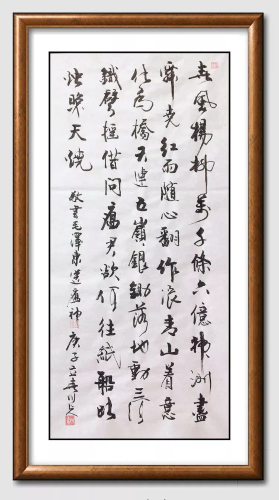 春風楊柳萬千條六億神洲盡
舜堯紅雨隨心翻作浪青山着意
化為橋天連五嶺銀鋤落地動三河
鐵臂搖借問瘟君欲何往紙船明
燭照天燒
敬書毛澤東送瘟神 庚子立春